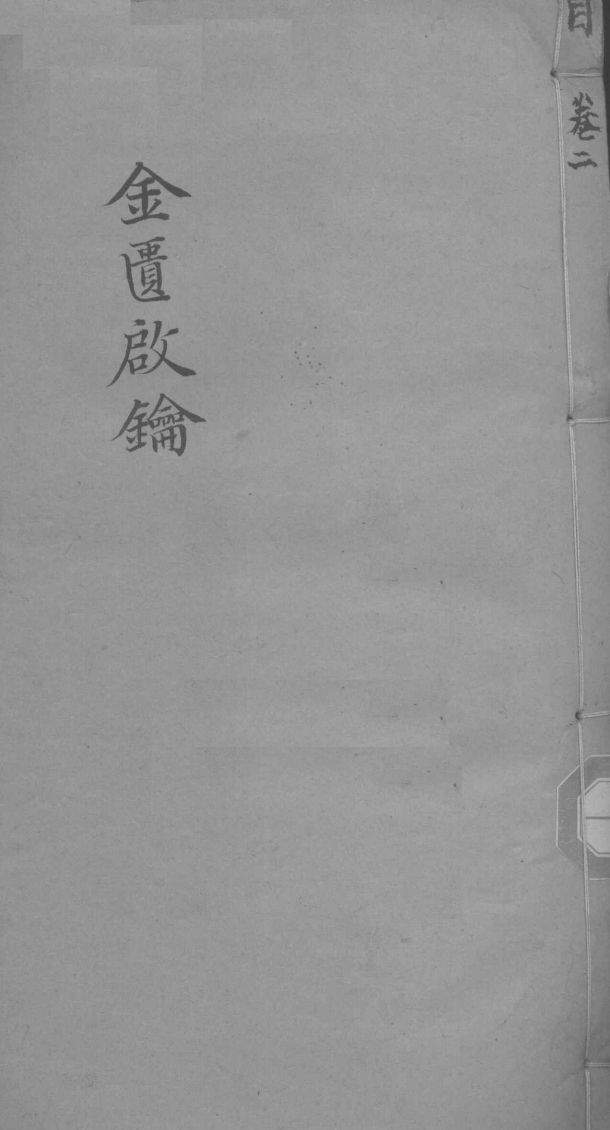 目
卷二
金匱啟鑰